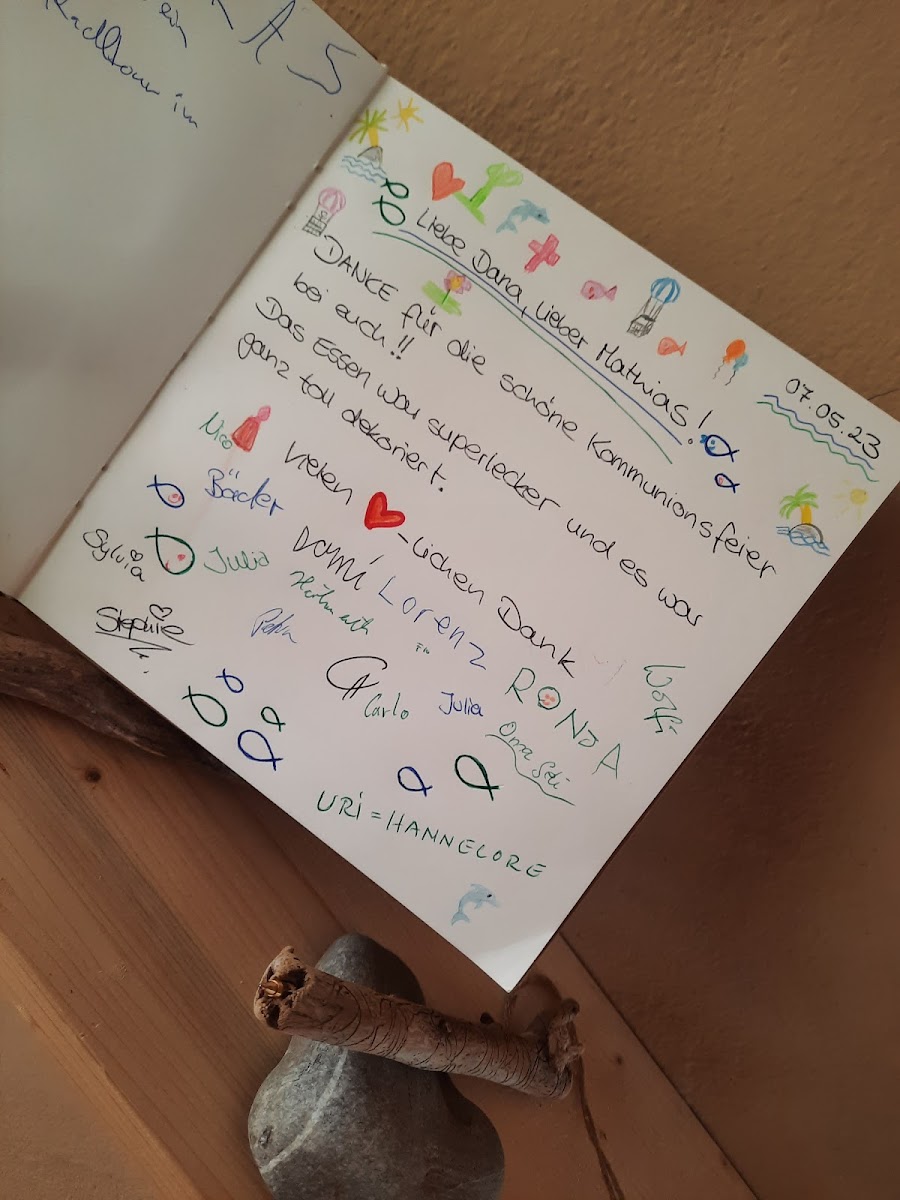 RAS
ein
Radltour im
07.05.23
Liebe Dana, Lieber Mathias!
DANKE für die schöne Kommunionsfeier
bei euch!!
Das Essen war superlecker und es war
ganz toll dekoriert.
Vielen -lichen Dank
Nico
Bäcker
Domi Lorenz
Sylvia
Julia
Stephie
RONJA
Wolfi
Carlo
Julia
Oma
URI = HANNELORE